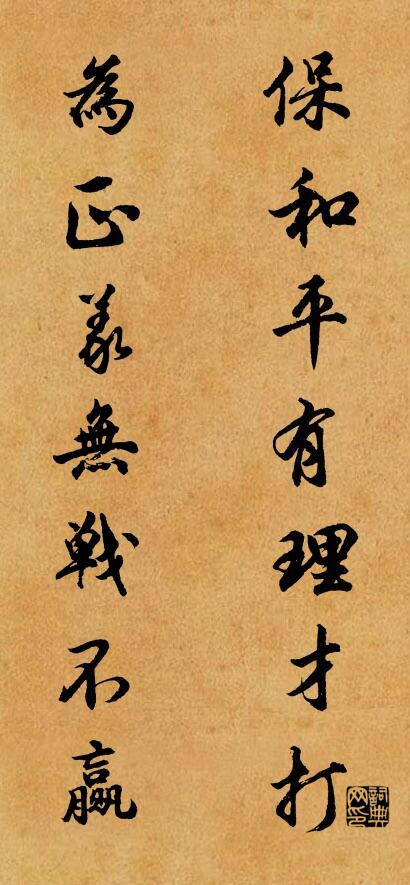 保和平有理才打
為正義無戰不贏
詞典
网印